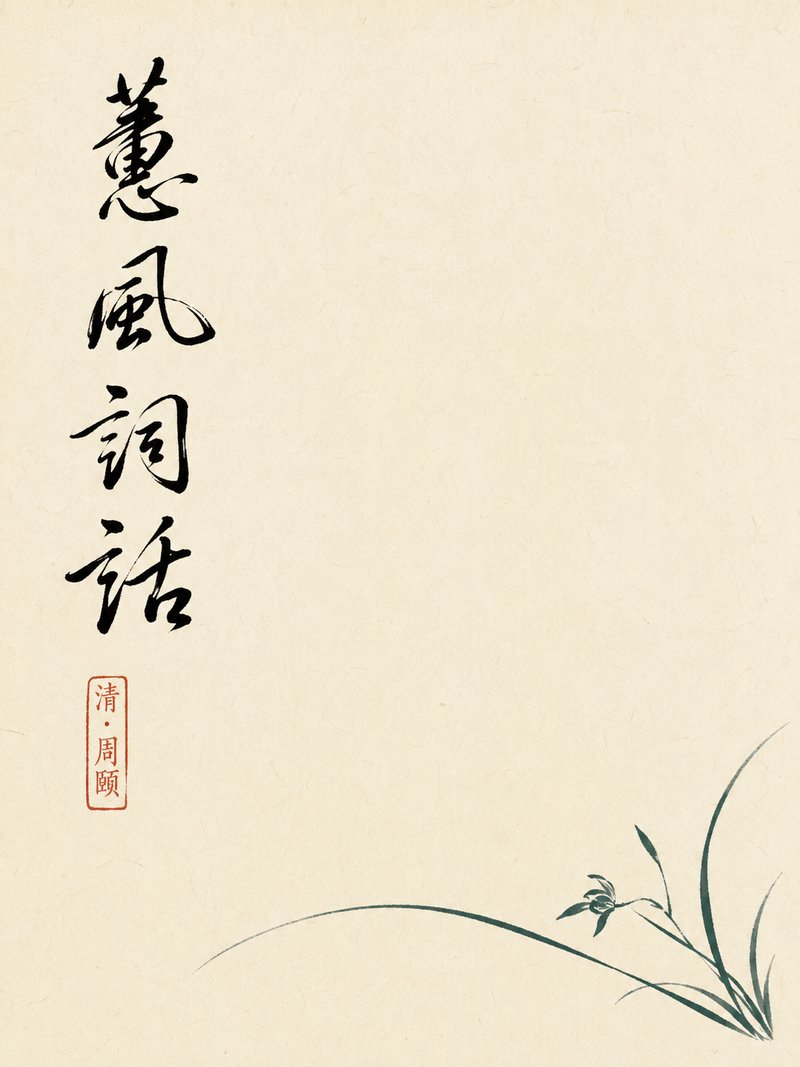 蕙風詞話
清·周頤